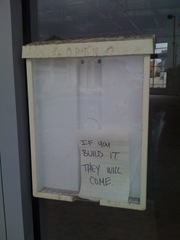 IF YOU
BUILD IT
THEY WILL
COME.